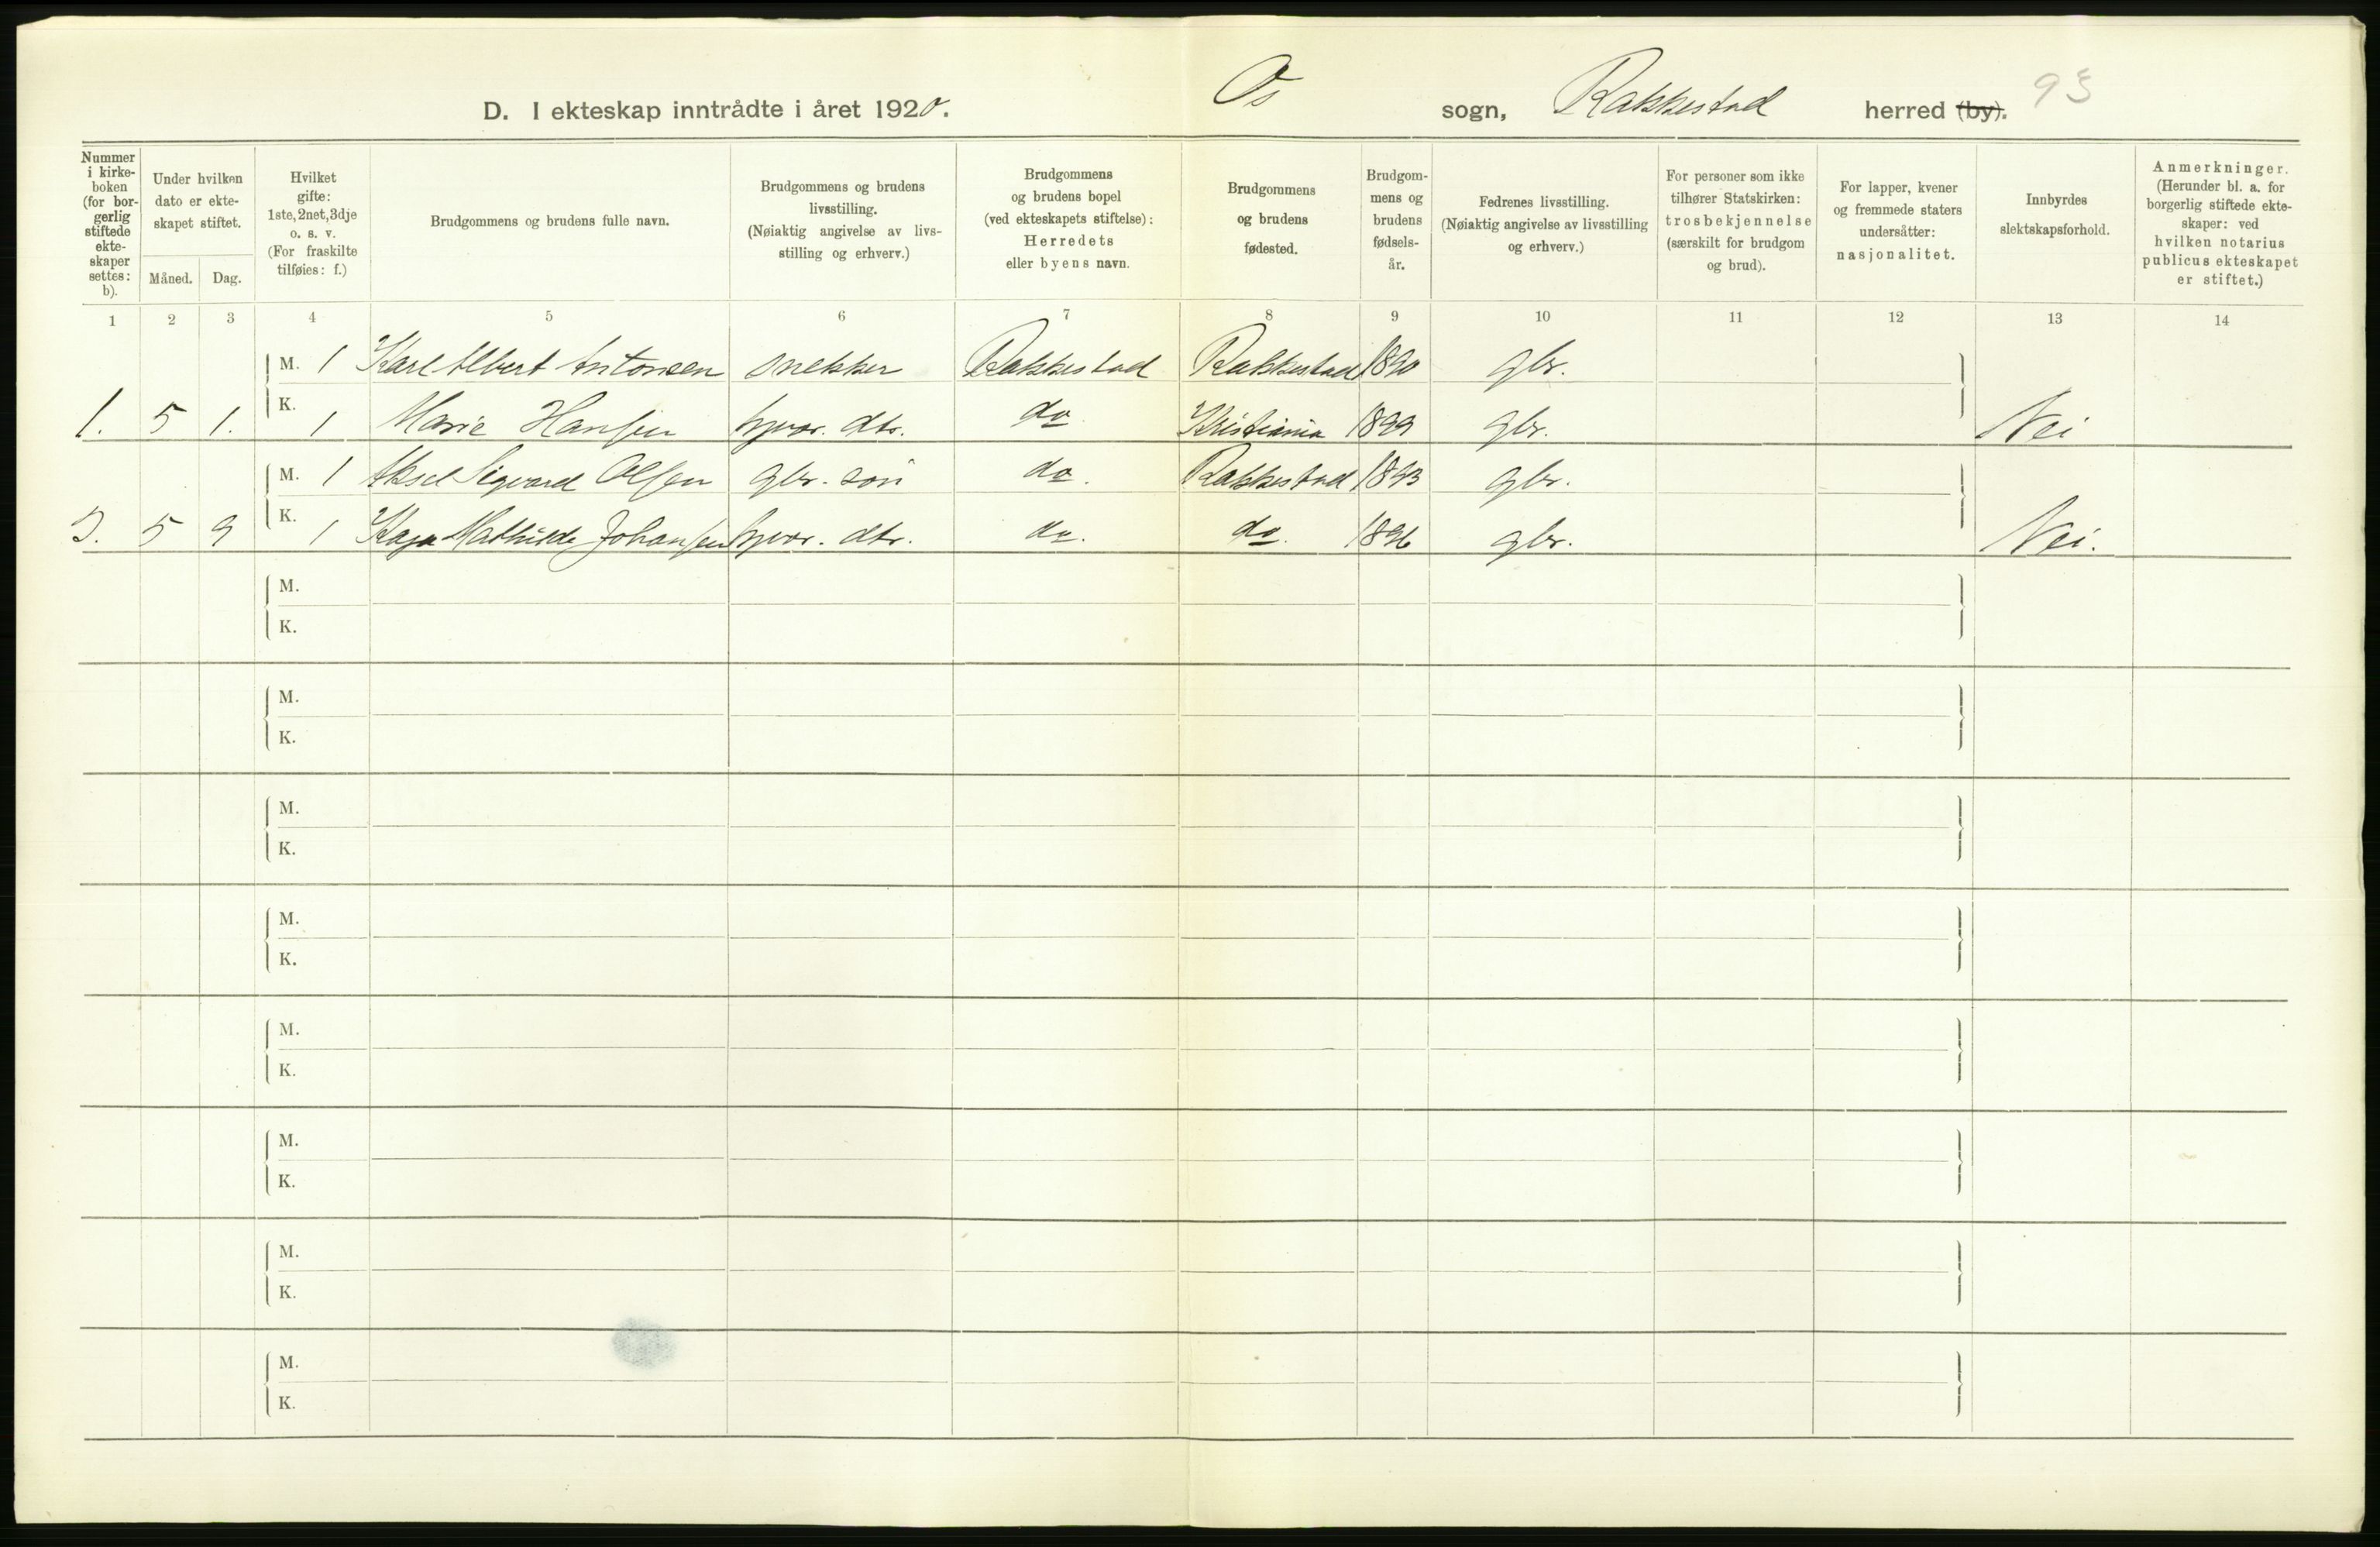 Os Rakkestad 93
D. I ekteskap inntrådte i året 1920. sogn, herred (by).
Nummer i kirkeboken (for borgerlig stiftede ekteskaper settes: b).
Under hvilken dato er ekteskapet stiftet.
Måned. Dag.
Hvilket gifte: 1ste, 2net, 3dje o. s. v. (For fraskilte tilføies: f.)
Brudgommens og brudens fulle navn.
Brudgommens og brudens livsstilling. (Nøiaktig angivelse av livsstilling og erhverv.)
Brudgommens og brudens bopel (ved ekteskapets stiftelse): Herredets eller byens navn.
Brudgommens og brudens fødested.
Brudgommens og brudens fødselsår.
Fedrenes livsstilling. (Nøiaktig angivelse av livsstilling og erhverv.)
For personer som ikke tilhører Statskirken: trosbekjennelse (særskilt for brudgom og brud).
For lapper, kvener og fremmede staters undersåtter: nasjonalitet.
Innbyrdes slektskapsforhold.
Anmerkninger. (Herunder bl. a. for borgerlig stiftede ekteskaper: ved hvilken notarius publicus ekteskapet er stiftet.)
1 2 3 4 5 6 7 8 9 10 11 12 13 14
M. 1 Karl Albert Antonsen snekker Rakkestad Rakkestad 1890 gbr.
1. 5 1. K. 1 Marie Hansen hjvær. dtr. do. Kristiania 1899 gbr. Nei
M. 1 Aksel Sigvard Olsen gbr. søn do. Rakkestad 1893 gbr.
5 9 K. 1 Kaja Mathilde Johansen hjvær. dtr. do. do. 1896 gbr. Nei.
M.
K.
M.
K.
M.
K.
M.
K.
M.
K.
M.
K.
M.
K.
M.
K.